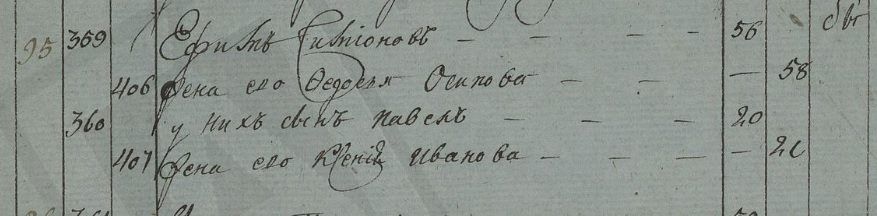 95 359 Ефимъ Симионовъ — — — 56
406 Жена ево Ѳедосья Осипова — — — 58
360 у нихъ сынъ Павелъ — — — 20
407 Жена ево Ксения Иванова — — —